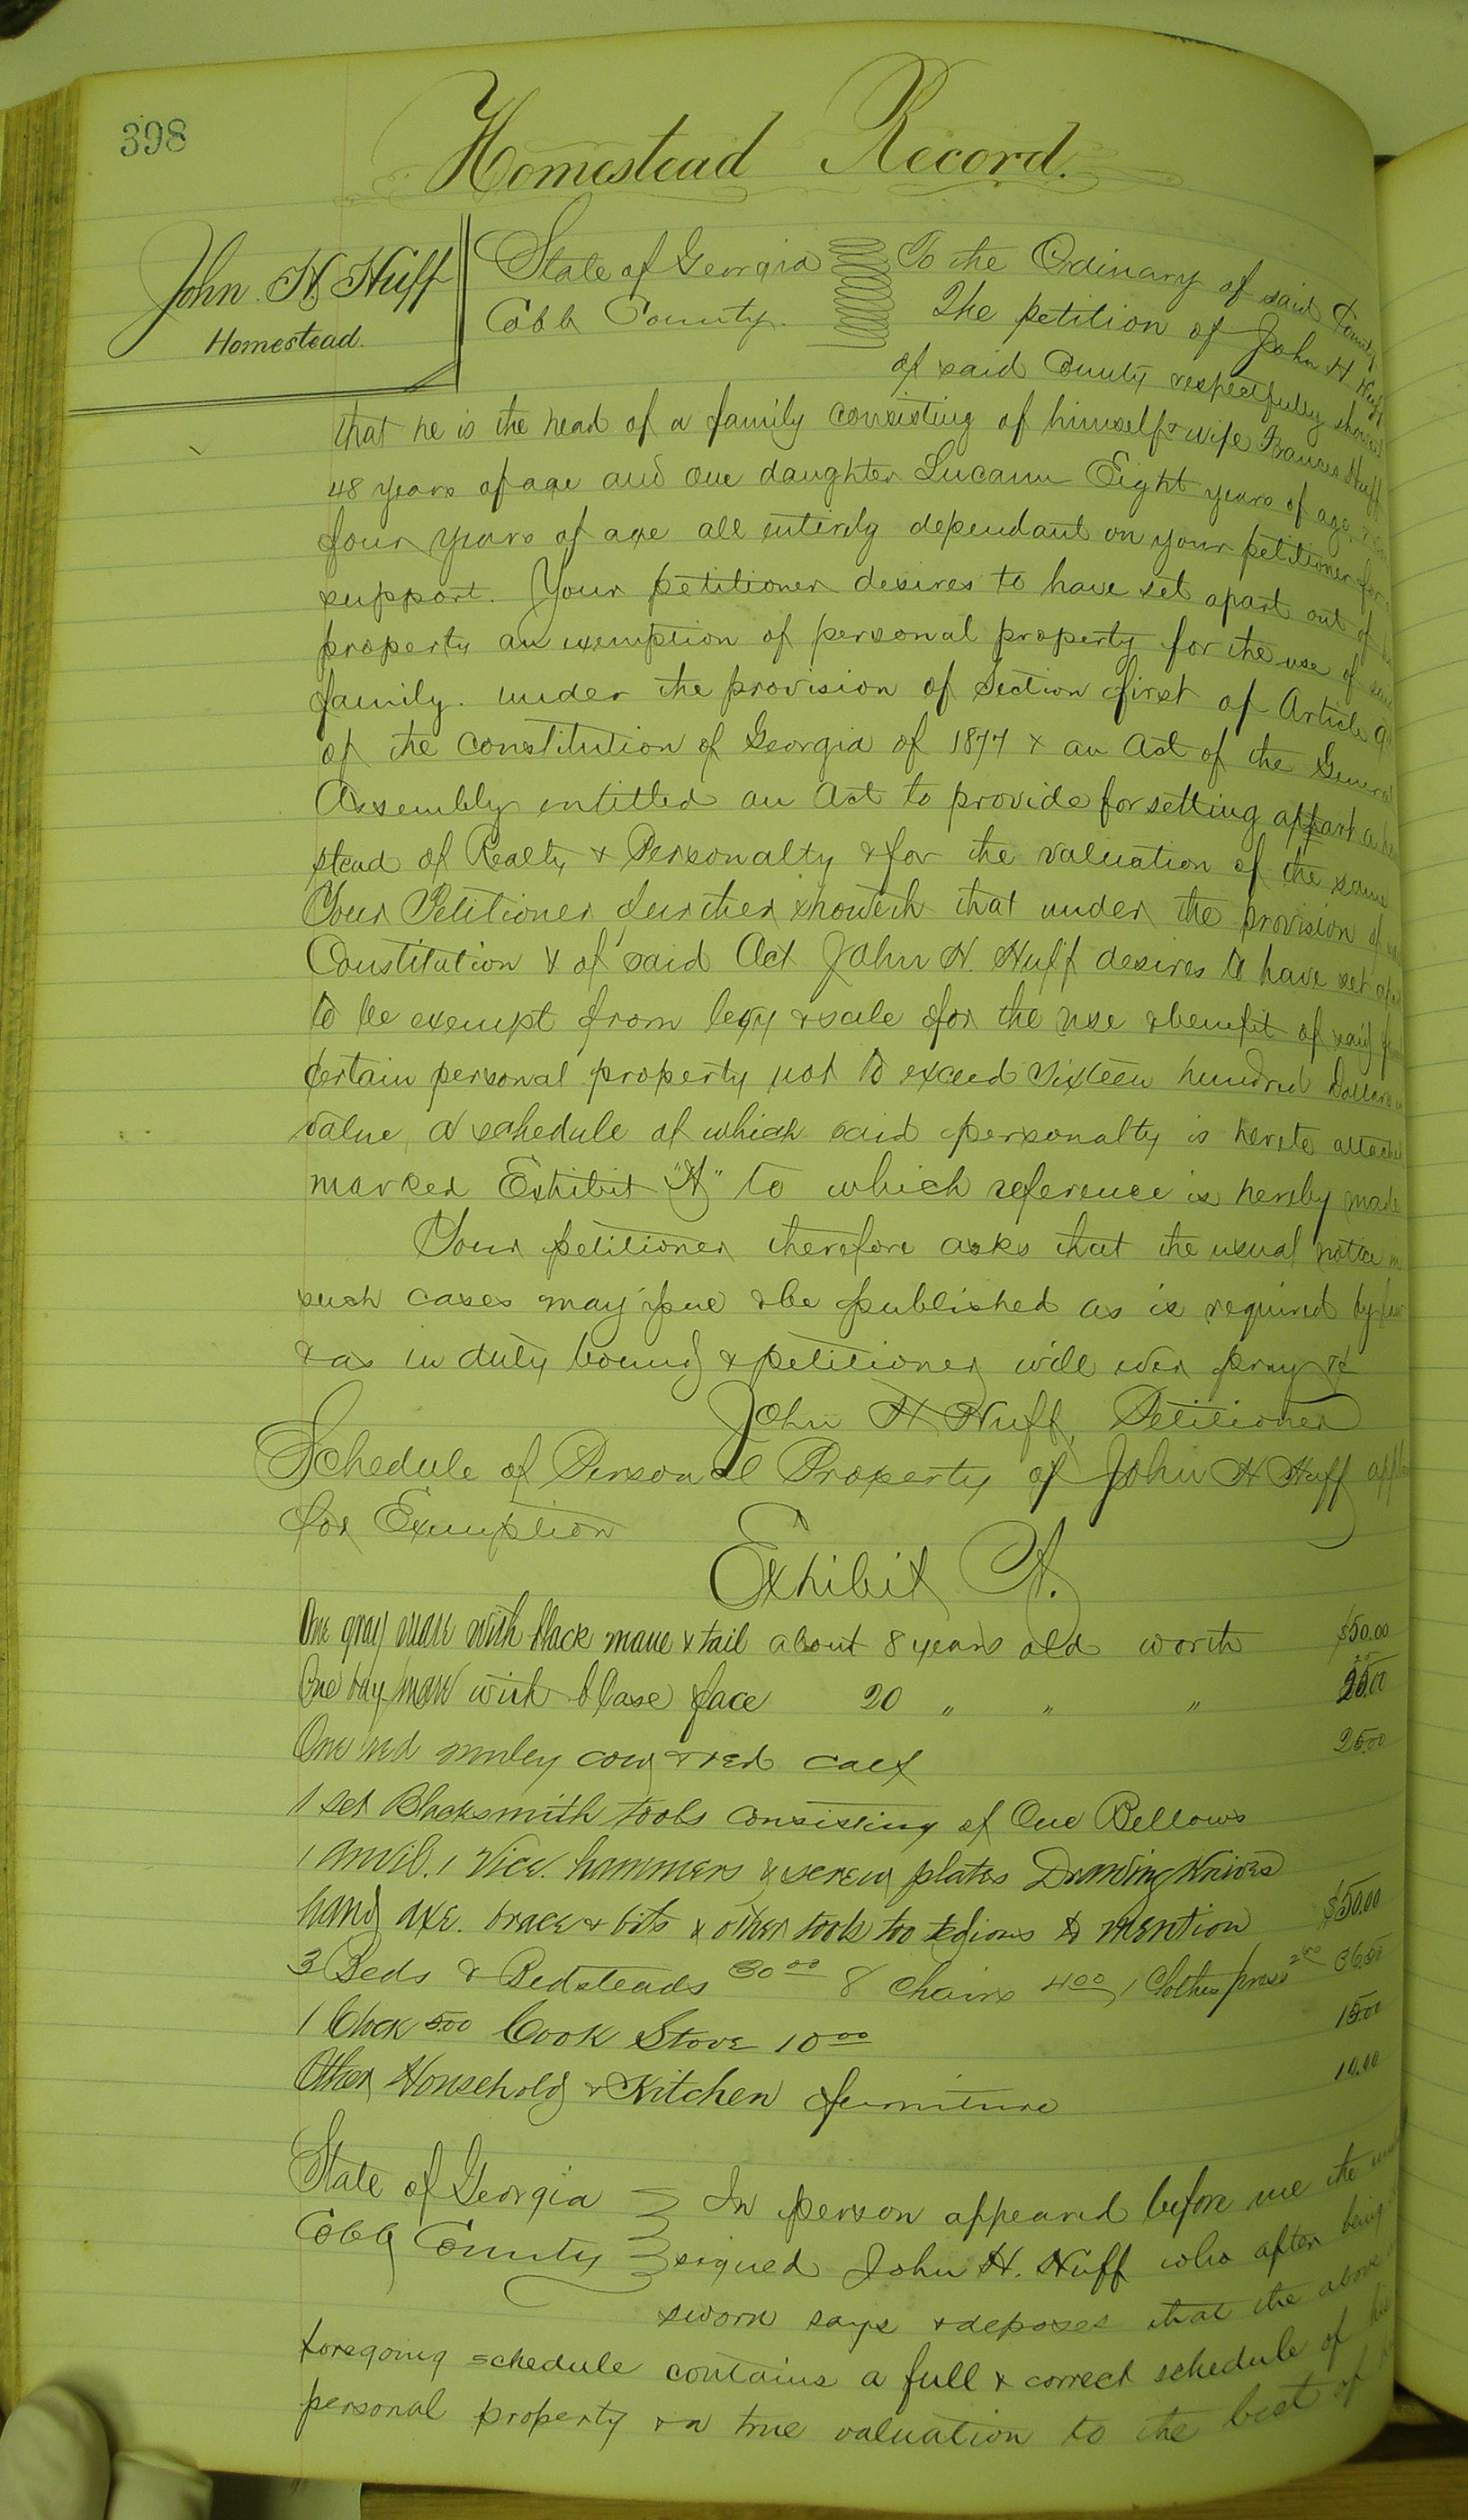 398
Homestead Record.
John H Huff
Homestead.
State of Georgia
Cobb County.
To the Ordinary of said County
The petition of John H Huff
of said County respectfully showeth
that he is the head of a family consisting of himself & wife Frances Huff
48 years of age and one daughter Lucann Eight years of age &
four years of age all entirely dependant on your petitioner for
support. Your petitioner desires to have set apart out of
property an exemption of personal property for the use of
family. under the provision of Section first of Article 9
of the constitution of Georgia of 1877 & an Act of the General
Assembly entitled an Act to provide for setting appart a
stead of Realty & Personalty & for the valuation of the same
Your Petitioner further showeth that under the provision of
Constitution & of said Act John H. Huff desires to have set
to be exempt from levy & sale for the use & benefit of said
certain personal property not to exceed Sixteen hundred Dollars
value, a schedule of which said personalty is hereto attached
marked Exhibit "A" to which reference is hereby made
Your petitioner therefore asks that the usual notice
such cases may issue & be published as is required by law
& as in duty bound & petitioner will ever pray &c
John H Huff, Petitioner
Schedule of Personal Property of John H Huff
for Exemption
Exhibit A.
One gray mare with black mane & tail about 8 years old worth $50.00
One bay mare with blase face 20 " " " 25.00
One red muley cow & red calf 25.00
1 set Blacksmith tools consisting of One Bellows
1 Anvil. 1 Vice. hammers & screw plates Drawing Knives
hand axe. brace & bits & other tools too tedious to mention $50.00
3 Beds & Bedsteads 30 00 8 Chairs 4 00, 1 Clothes press 2 00 36.00
1 Clock 5.00 Cook Stove 10 00 15.00
Other Household & Kitchen furniture 10.00
State of Georgia
Cobb County
In person appeared before me the
signed John H. Huff who after being
sworn says & deposes that the above
foregoing schedule contains a full & correct schedule of his
personal property & a true valuation to the best of